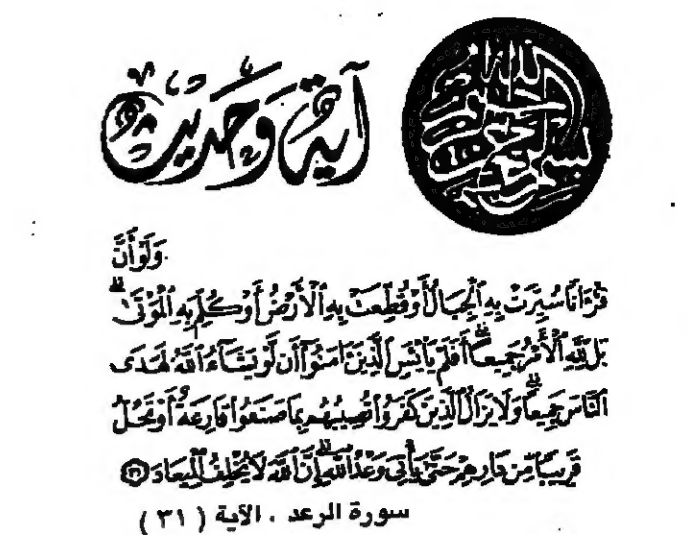 بسم الله الرحمن الرحيم
آية وحديث
وَلَوْ أَنَّ
قُرْءَانًا سُيِّرَتْ بِهِ ٱلْجِبَالُ أَوْ قُطِّعَتْ بِهِ ٱلْأَرْضُ أَوْ كُلِّمَ بِهِ ٱلْمَوْتَىٰ ۗ
بَل لِّلَّهِ ٱلْأَمْرُ جَمِيعًا ۗ أَفَلَمْ يَا۟يْـَٔسِ ٱلَّذِينَ ءَامَنُوٓا۟ أَن لَّوْ يَشَآءُ ٱللَّهُ لَهَدَى
ٱلنَّاسَ جَمِيعًا ۗ وَلَا يَزَالُ ٱلَّذِينَ كَفَرُوا۟ تُصِيبُهُم بِمَا صَنَعُوا۟ قَارِعَةٌ أَوْ تَحُلُّ
قَرِيبًا مِّن دَارِهِمْ حَتَّىٰ يَأْتِىَ وَعْدُ ٱللَّهِ ۚ إِنَّ ٱللَّهَ لَا يُخْلِفُ ٱلْمِيعَادَ ٣١
سورة الرعد . الآية ( ٣١ )